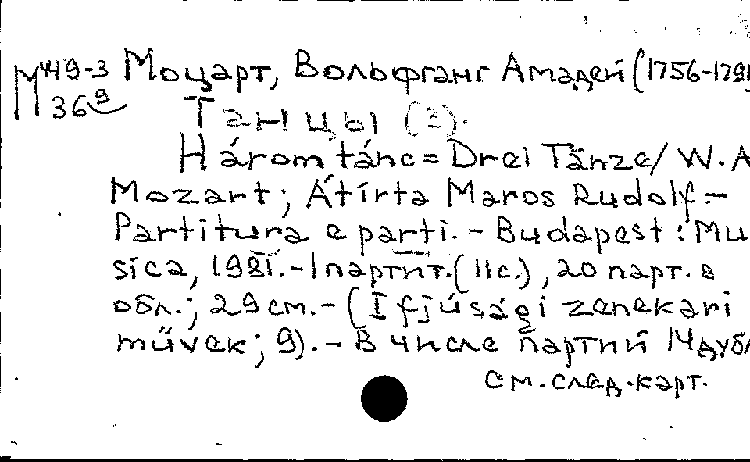 М49-3 Моцарт, Вольфганг Амадей (1756-1791
М 36⁹ Танцы (3).
Három tánc = Drei Tänze / W. A
Mozart; Átírta Maros Rudolf. –
Partitura e parti. – Budapest : Mu
sica, 1981. – 1 партит. (11 с.), 20 парт. в
обл.; 29 см. – (Ifjúsági zenekari
művek; 9). – В числе партий 14 дубл
см. след. карт.